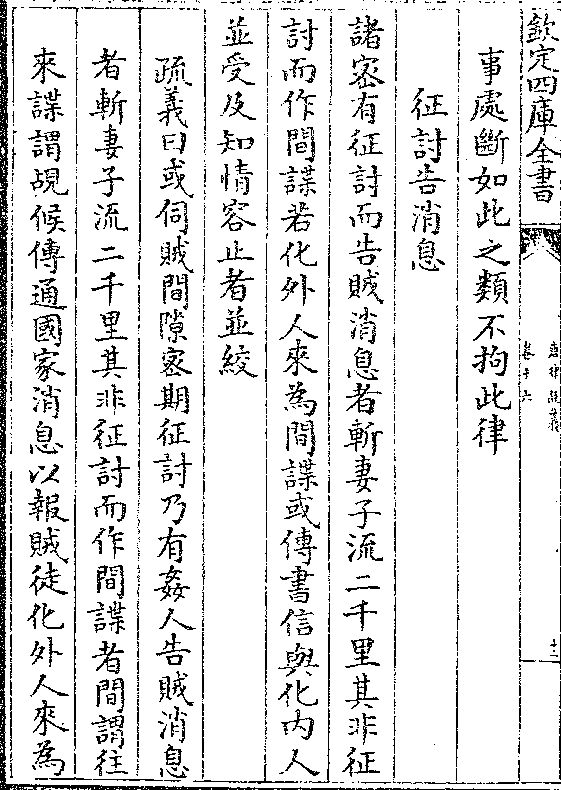 欽定四庫全書
唐律疏義
卷十六
十二
事處斷如此之類不拘此律
征討告消息
諸密有征討而告賊消息者斬妻子流二千里其非征
討而作間諜若化外人來為間諜或傳書信與化内人
並受及知情容止者並絞
疏義曰或伺賊間隙密期征討乃有姦人告賊消息
者斬妻子流二千里其非征討而作間諜者間謂往
來諜謂覘候傳通國家消息以報賊徒化外人來為